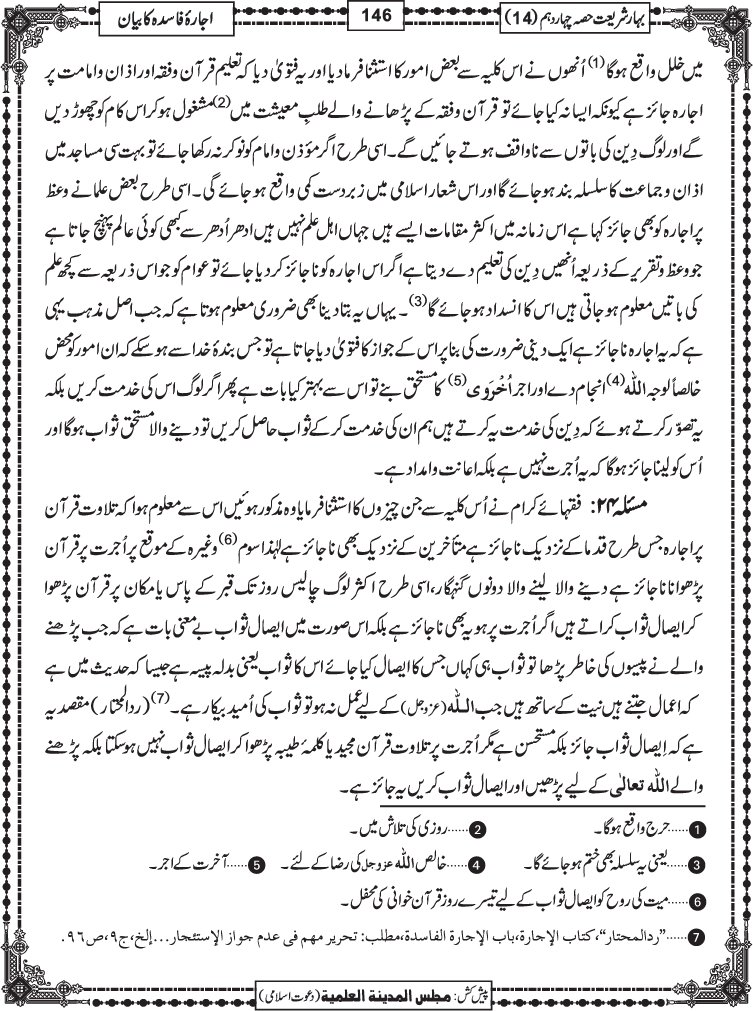 بہارِ شریعت حصہ چہاردہم (14)
146
اجارۂ فاسدہ کا بیان
میں خلل واقع ہوگا(1) اُنھوں نے اس کلیہ سے بعض امور کا استثنا فرما دیا اور یہ فتویٰ دیا کہ تعلیم قرآن وفقہ اور اذان وامامت پر
اجارہ جائز ہے کیونکہ ایسا نہ کیا جائے تو قرآن وفقہ کے پڑھانے والے طلب معیشت میں(2) مشغول ہوکر اس کام کو چھوڑ دیں
گے اور لوگ دِین کی باتوں سے ناواقف ہوتے جائیں گے۔ اسی طرح اگر مؤذن وامام کو نوکر نہ رکھا جائے تو بہت سی مساجد میں
اذان و جماعت کا سلسلہ بند ہوجائے گا اور اس شعار اسلامی میں زبردست کمی واقع ہوجائے گی۔ اسی طرح بعض علما نے وعظ
پر اجارہ کو بھی جائز کہا ہے اس زمانہ میں اکثر مقامات ایسے ہیں جہاں اہل علم نہیں ہیں ادھر اُدھر سے کبھی کوئی عالم پہنچ جاتا ہے
جو وعظ وتقریر کے ذریعہ اُنھیں دِین کی تعلیم دے دیتا ہے اگر اس اجارہ کو ناجائز کردیا جائے تو عوام کو جو اس ذریعہ سے کچھ علم
کی باتیں معلوم ہوجاتی ہیں اس کا انسداد ہوجائے گا(3)۔ یہاں یہ بتا دینا بھی ضروری معلوم ہوتا ہے کہ جب اصل مذہب یہی
ہے کہ یہ اجارہ ناجائز ہے ایک دینی ضرورت کی بنا پر اس کے جواز کا فتویٰ دیا جاتا ہے تو جس بندۂ خدا سے ہوسکے کہ ان امور کو محض
خالصاً لوجہ اللہ(4) انجام دے اور اجرِ اُخْرَوی(5) کا مستحق بنے تو اس سے بہتر کیا بات ہے پھر اگر لوگ اس کی خدمت کریں بلکہ
یہ تصوّر کرتے ہوئے کہ دِین کی خدمت یہ کرتے ہیں ہم ان کی خدمت کرکے ثواب حاصل کریں تو دینے والا مستحق ثواب ہوگا اور
اُس کو لینا جائز ہوگا کہ یہ اُجرت نہیں ہے بلکہ اعانت و امداد ہے۔
مسئلہ ۲۴: فقہائے کرام نے اُس کلیہ سے جن چیزوں کا استثنا فرمایا وہ مذکور ہوئیں اس سے معلوم ہوا کہ تلاوت قرآن
پر اجارہ جس طرح قدما کے نزدیک ناجائز ہے متأخرین کے نزدیک بھی ناجائز ہے لہٰذا سوم(6) وغیرہ کے موقع پر اُجرت پر قرآن
پڑھوانا ناجائز ہے دینے والا لینے والا دونوں گنہگار، اسی طرح اکثر لوگ چالیس روز تک قبر کے پاس یا مکان پر قرآن پڑھوا
کر ایصال ثواب کراتے ہیں اگر اُجرت پر ہو یہ بھی ناجائز ہے بلکہ اس صورت میں ایصال ثواب بے معنی بات ہے کہ جب پڑھنے
والے نے پیسوں کی خاطر پڑھا تو ثواب ہی کہاں جس کا ایصال کیا جائے اس کا ثواب یعنی بدلہ پیسہ ہے جیسا کہ حدیث میں ہے
کہ اعمال جتنے ہیں نیت کے ساتھ ہیں جب اللہ (عزوجل) کے لیے عمل نہ ہو تو ثواب کی اُمید بیکار ہے۔(7) (ردالمحتار) مقصد یہ
ہے کہ اِیصال ثواب جائز بلکہ مستحسن ہے مگر اُجرت پر تلاوت قرآن مجید یا کلمۂ طیبہ پڑھوا کر ایصال ثواب نہیں ہوسکتا بلکہ پڑھنے
والے اللہ تعالیٰ کے لیے پڑھیں اور ایصال ثواب کریں یہ جائز ہے۔
1 ……حرج واقع ہوگا۔ 2 ……روزی کی تلاش میں۔
3 ……یعنی یہ سلسلہ بھی ختم ہوجائے گا۔ 4 ……خالص اللہ عزوجل کی رضا کے لئے۔ 5 ……آخرت کے اجر۔
6 ……میت کی روح کو ایصال ثواب کے لیے تیسرے روز قرآن خوانی کی محفل۔
7 ……"ردالمحتار"، كتاب الإجارة، باب الإجارة الفاسدة، مطلب: تحرير مهم في عدم جواز الإستئجار...إلخ، ج۹، ص۹۶.
پیش کش: مجلس المدینۃ العلمیۃ (دعوت اسلامی)